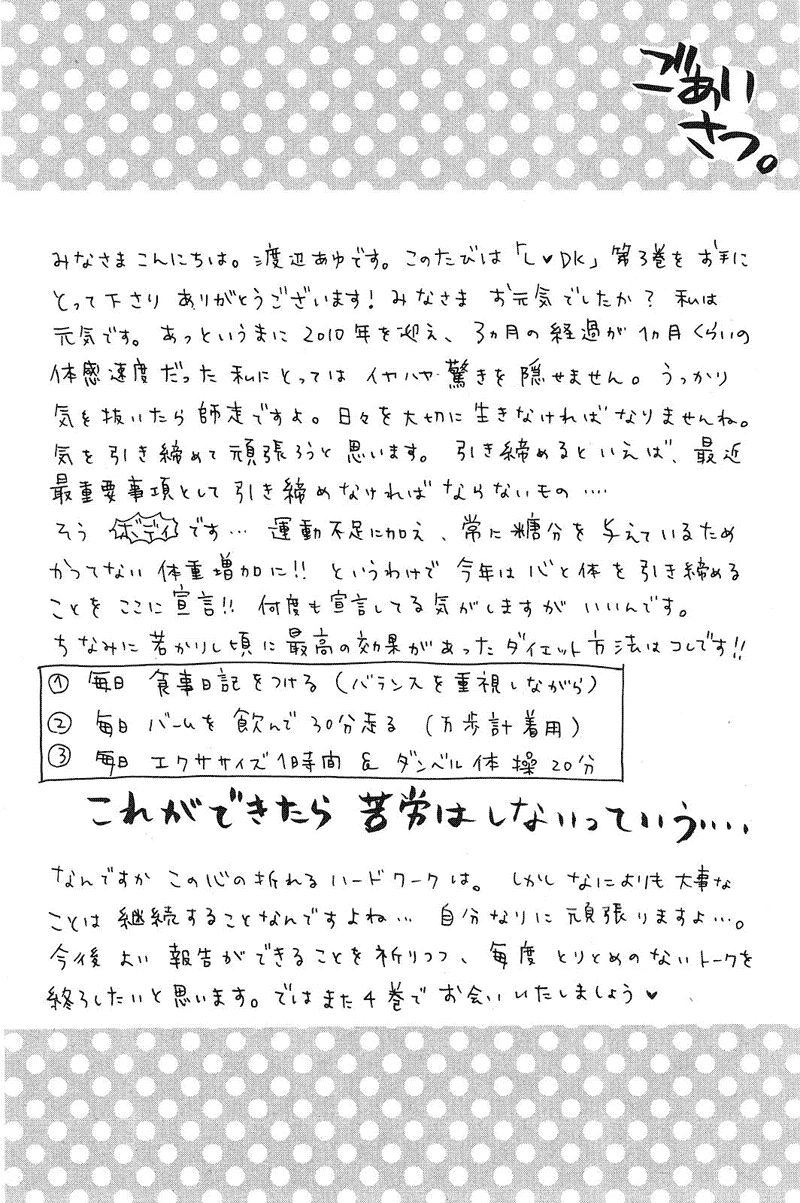 ごあい
さつ。
みなさまこんにちは。渡辺あゆです。このたびは「L♥DK」第3巻をお手に
とって下さり ありがとうございます！みなさま お元気でしたか？ 私は
元気です。あっというまに 2010年を迎え、3ヵ月の経過が1ヵ月くらいの
体感速度だった私にとっては イヤハヤ驚きを隠せません。うっかり
気を抜いたら師走ですよ。日々を大切に生きなければなりませんね。
気を引き締めて頑張ろうと思います。引き締めるといえば、最近
最重要事項として引き締めなければならないもの‥‥
そう ボディです… 運動不足に加え、常に糖分を与えているため
かつてない 体重増加に!! というわけで 今年は心と体を引き締める
ことをここに宣言!! 何度も宣言してる気がしますが いいんです。
ちなみに若かりし頃に最高の効果があったダイエット方法はコレです!!
① 毎日 食事日記をつける（バランスを重視しながら）
② 毎日 バームを飲んで30分走る（万歩計着用）
③ 毎日 エクササイズ1時間 & ダンベル体操20分
これができたら 苦労はしないっていう‥‥
なんですか この心の折れるハードワークは。しかしなによりも大事な
ことは継続することなんですよね… 自分なりに頑張りますよ…。
今後よい報告ができることを祈りつつ、毎度とりとめのないトークを
終ろしたいと思います。ではまた4巻で お会いいたしましょう♥